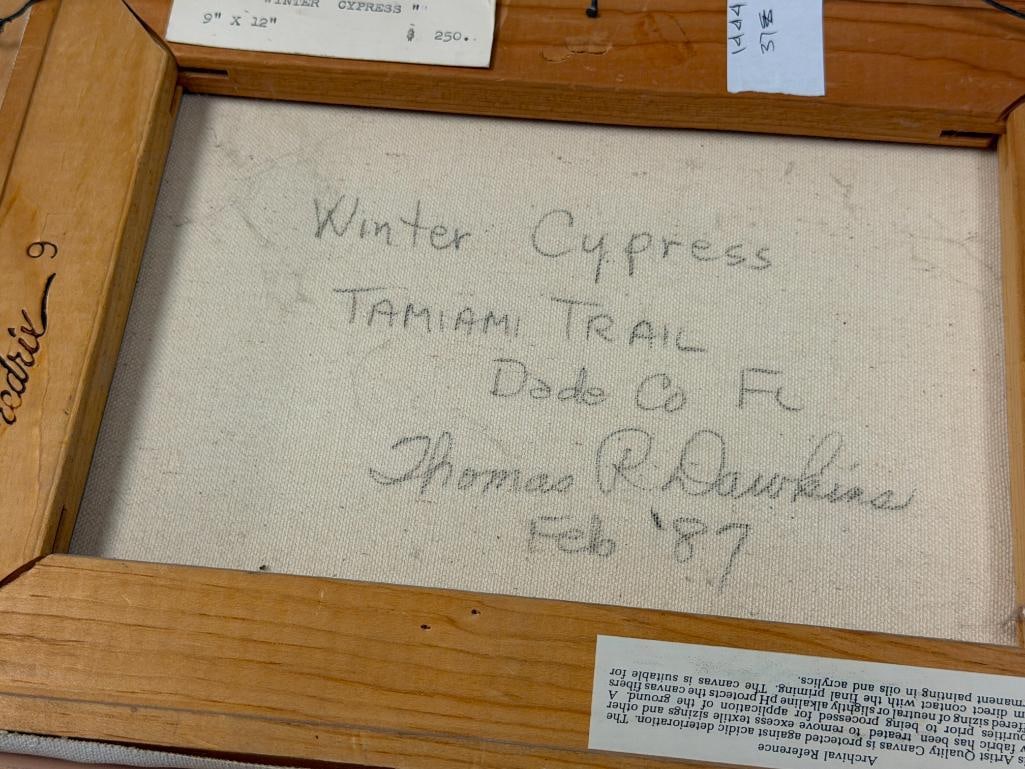 "WINTER CYPRESS"
9" X 12"
$ 250..
Winter Cypress
TAMIAMI TRAIL
Dade Co FL
Thomas R. Dawkins
Feb '87
9
Archival Reference
Artist Quality Canvas is protected against acidic deterioration. The
fabric has been treated to remove excess textile sizings and other
prior to being processed for application of the ground. A
sizing of neutral or slightly alkaline pH protects the canvas fibers
direct contact with the final priming. The canvas is suitable for
painting in oils and acrylics.